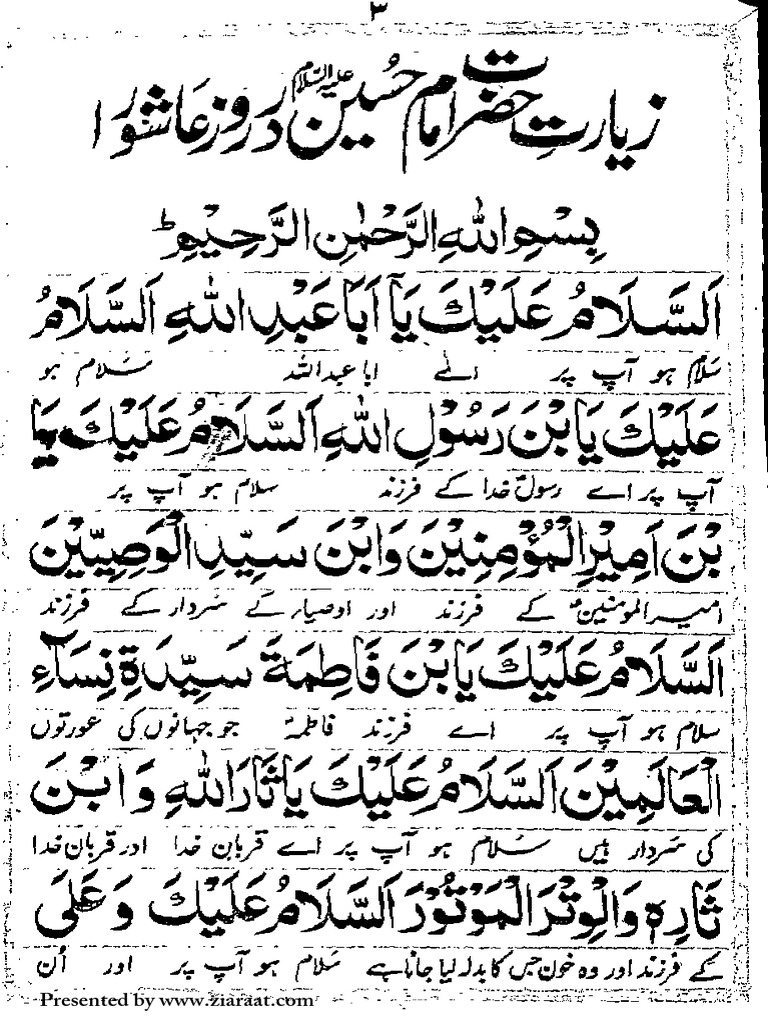 ٣
زیارتِ حضرت امام حسین علیہ السلام در روز عاشورا
بِسْمِ اللهِ الرَّحْمٰنِ الرَّحِیْمِ ط
اَلسَّلَامُ عَلَیْكَ یَآ اَبَا عَبْدِ اللهِ اَلسَّلَامُ
سَلام ہو آپ پر اے ابا عبداللہ سَلام ہو
عَلَیْكَ یَا بْنَ رَسُوْلِ اللهِ اَلسَّلَامُ عَلَیْكَ یَا
آپ پر اے رسولِ خدا کے فرزند سلام ہو آپ پر
بْنَ اَمِیْرِ الْمُؤْمِنِیْنَ وَابْنَ سَیِّدِ الْوَصِیِّیْنَ
امیرالمومنینؑ کے فرزند اور اوصیاء کے سَردار کے فرزند
اَلسَّلَامُ عَلَیْكَ یَا بْنَ فَاطِمَةَ سَیِّدَةِ نِسَآءِ
سلام ہو آپ پر اے فرزند فاطمہؑ جو جہانوں کی عورتوں
الْعَالَمِیْنَ اَلسَّلَامُ عَلَیْكَ یَا ثَارَ اللهِ وَابْنَ
کی سَردار ہیں سَلام ہو آپ پر اے قربانِ خدا اور قربانِ خدا
ثَارِهٖ وَالْوِتْرَ الْمَوْتُوْرَ اَلسَّلَامُ عَلَیْكَ وَعَلَی
کے فرزند اور وہ خون جس کا بدلہ لیا جانا ہے سَلام ہو آپ پر اور اُن
Presented by www.ziaraat.com